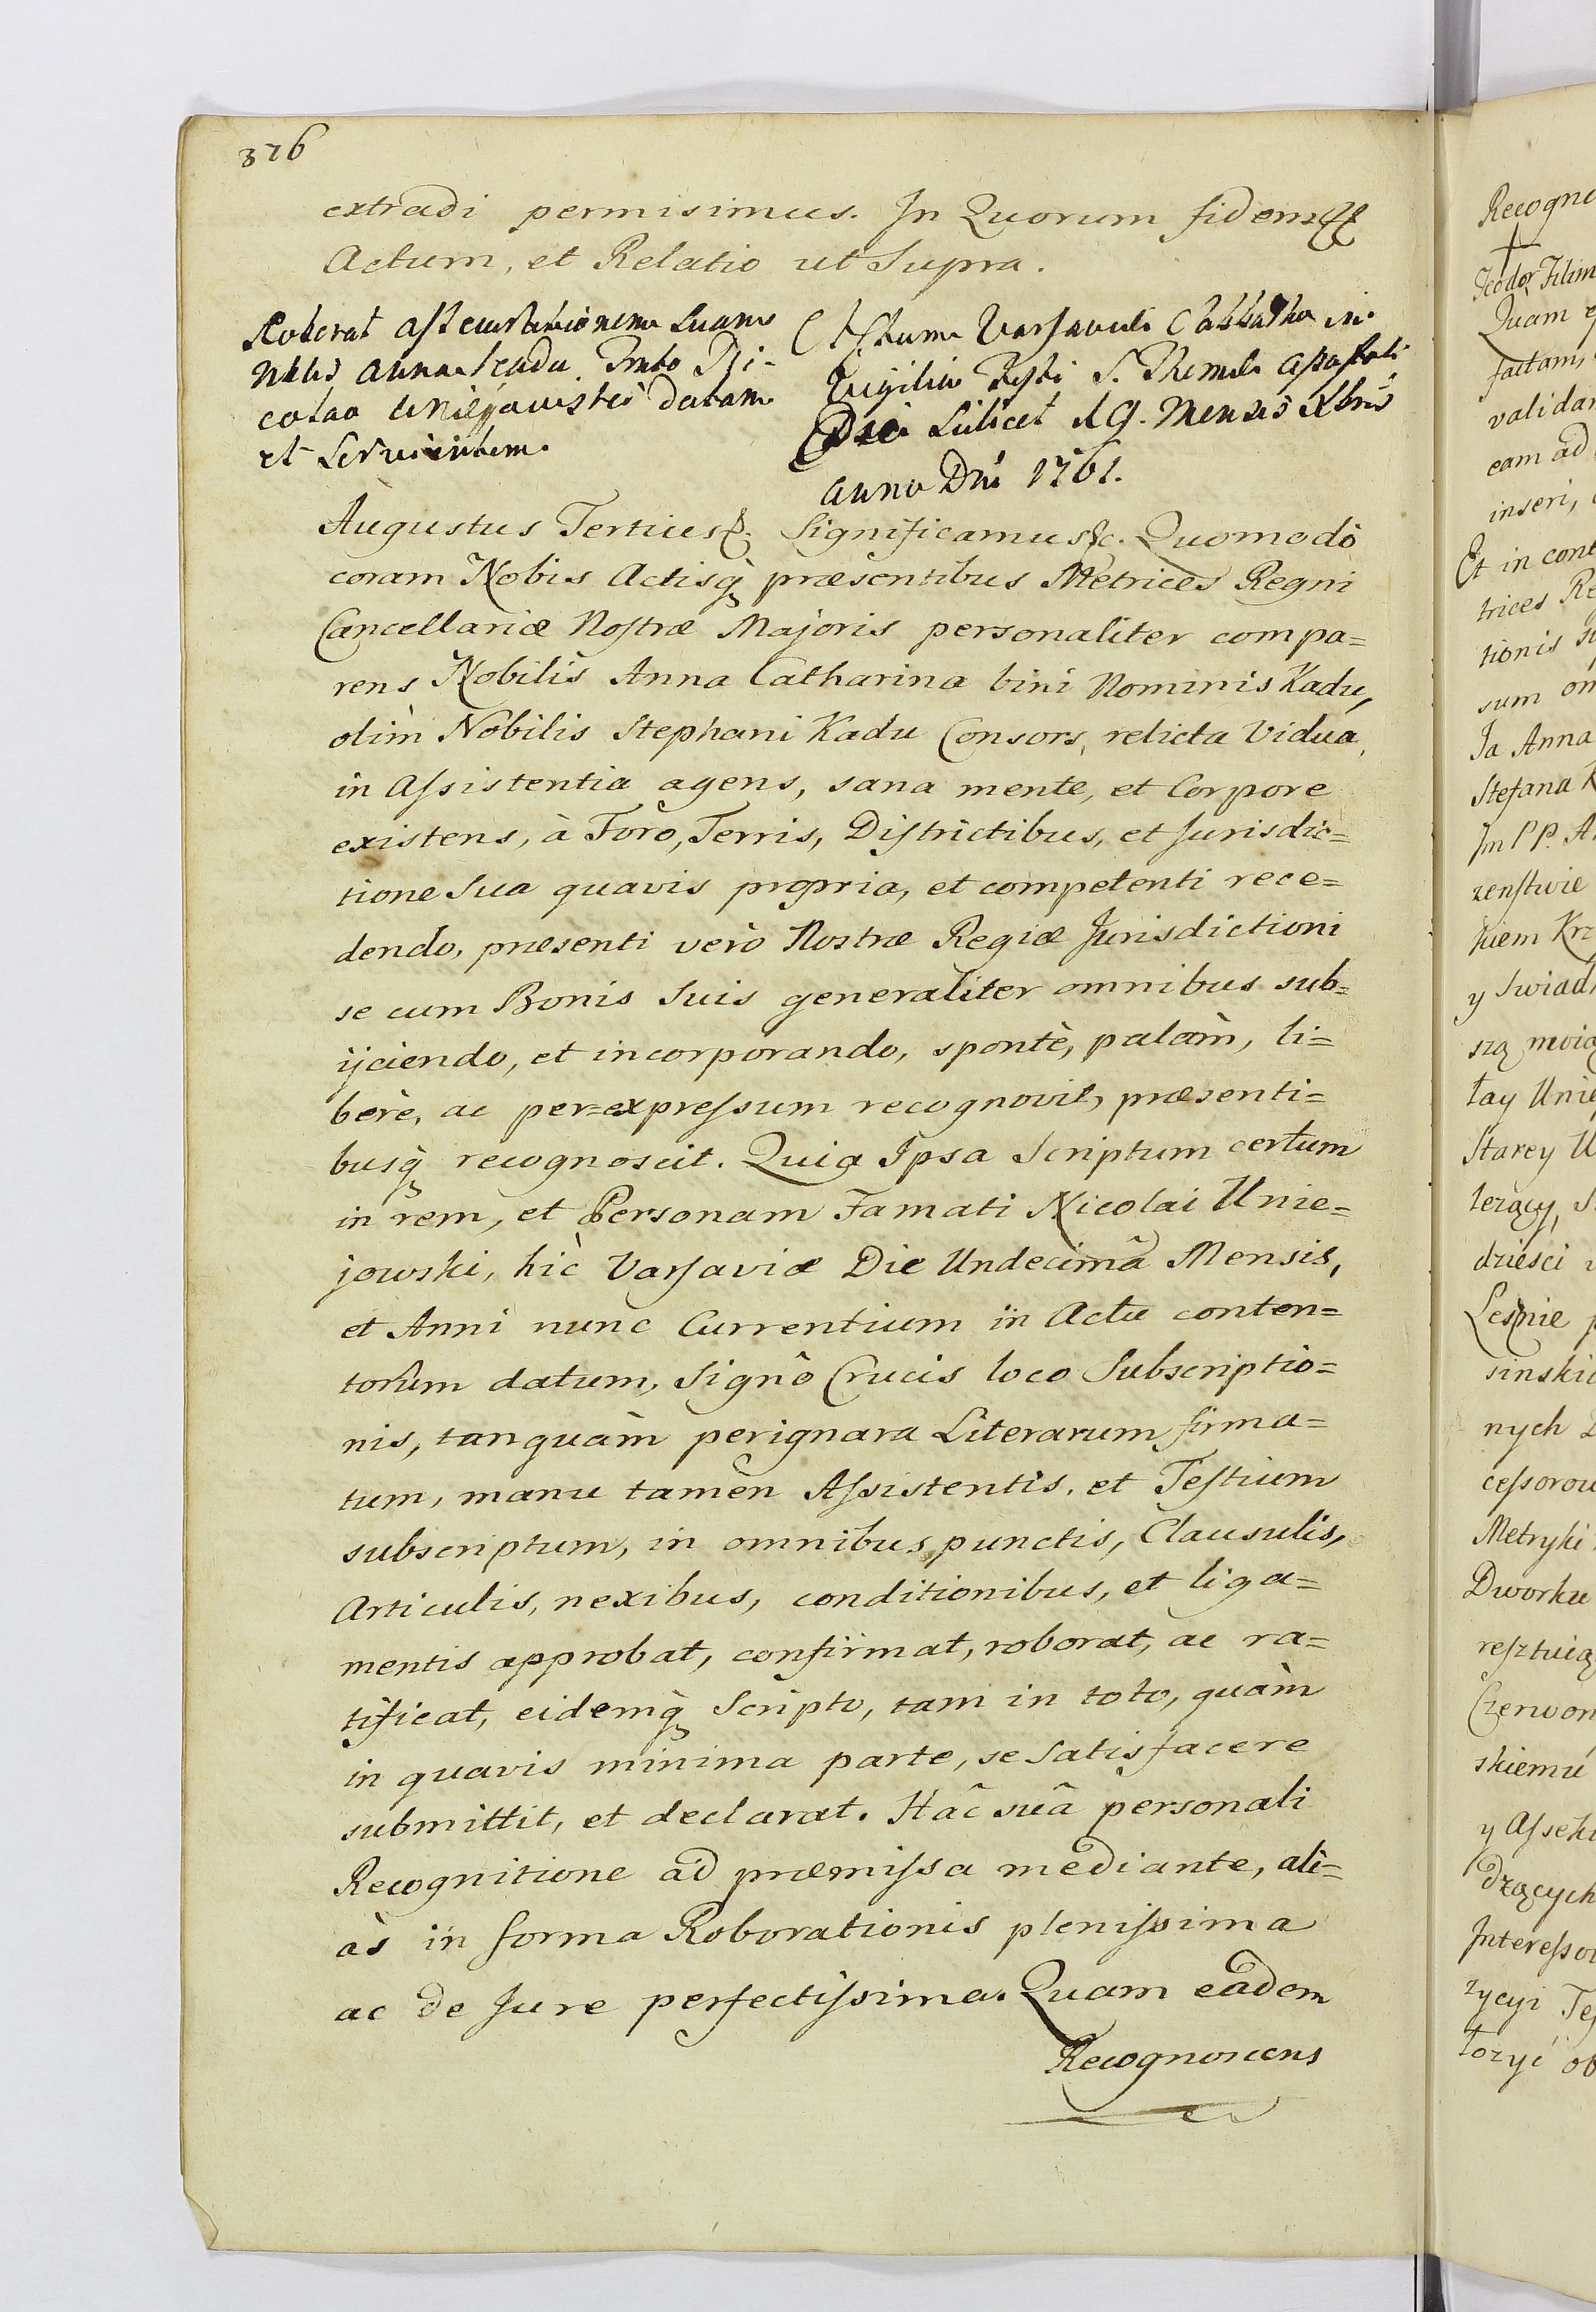 376
extradi permisimus. In Quorum fidem &c
Actum, et Relatio ut Supra.
Roborat Assecurationem Suam
Nblis Anna Kadu Fmto Ni-
colao Uniejowski datam
et Servientem.
Actum Varsaviæ Sabbatho in
Vigilia Festi S. Thomæ Apostoli
Die Scilicet 19. Mensis Xbris
Anno Dni 1761.
Augustus Tertius &. Significamus &c. Quomodò
coram Nobis Actisq̀ præsentibus Metrices Regni
Cancellariæ Nostræ Majoris personaliter compa=
rens Nobilis Anna Catharina bini Nominis Kadu,
olim Nobilis Stephani Kadu Consors, relicta Vidua,
in Assistentia agens, sana mente, et Corpore
existens, à Foro, Terris, Districtibus, et Jurisdic=
tione Sua quavis propria, et competenti rece=
dendo, præsenti verò Nostræ Regiæ Jurisdictioni
se cum Bonis Suis generaliter omnibus sub=
ijciendo, et incorporando, spontè, palàm, li=
berè, ac per=expressum recognovit, præsenti=
busq̀ recognoscit. Quia Ipsa Scriptum certum
in rem, et Personam Famati Nicolai Unie=
jowski, hìc Varsaviæ Die Undecimâ Mensis,
et Anni nunc Currentium in Actu conten=
torum datum, Signô Crucis loco Subscriptio=
nis, tanquàm perignara Literarum firma=
tum, manu tamèn Assistentis, et Testium
subscriptum, in omnibus punctis, Clausulis,
Articulis, nexibus, conditionibus, et liga=
mentis approbat, confirmat, roborat, ac ra=
tificat, eidemq̀ Scripto, tam in toto, quàm
in quavis minima parte, se Satisfacere
submittit, et declarat. Hâc suâ personali
Recognitione ad præmissa mediante, ali=
às in forma Roborationis plenissima
ac de Jure perfectissima. Quam eadem
Recognoscens
Recogno
Teodor Filim
Quàm e
factam,
validam
eam ad
inseri,
Et in cont
trices Re
tionis
sum om
Ja Anna
Stefana K
Im PP. A
zenstwie
kiem Krz
y Swiad
szą moią
łay Unie
Starey W
leżący, S
dziesci
Lesznie p
sinskie
nych
cessorow
Metryki
Dworku
resztuią
Czerwon
skiemu
y Asseku
dzących
Interesso
zycyi Te
łozyć ob